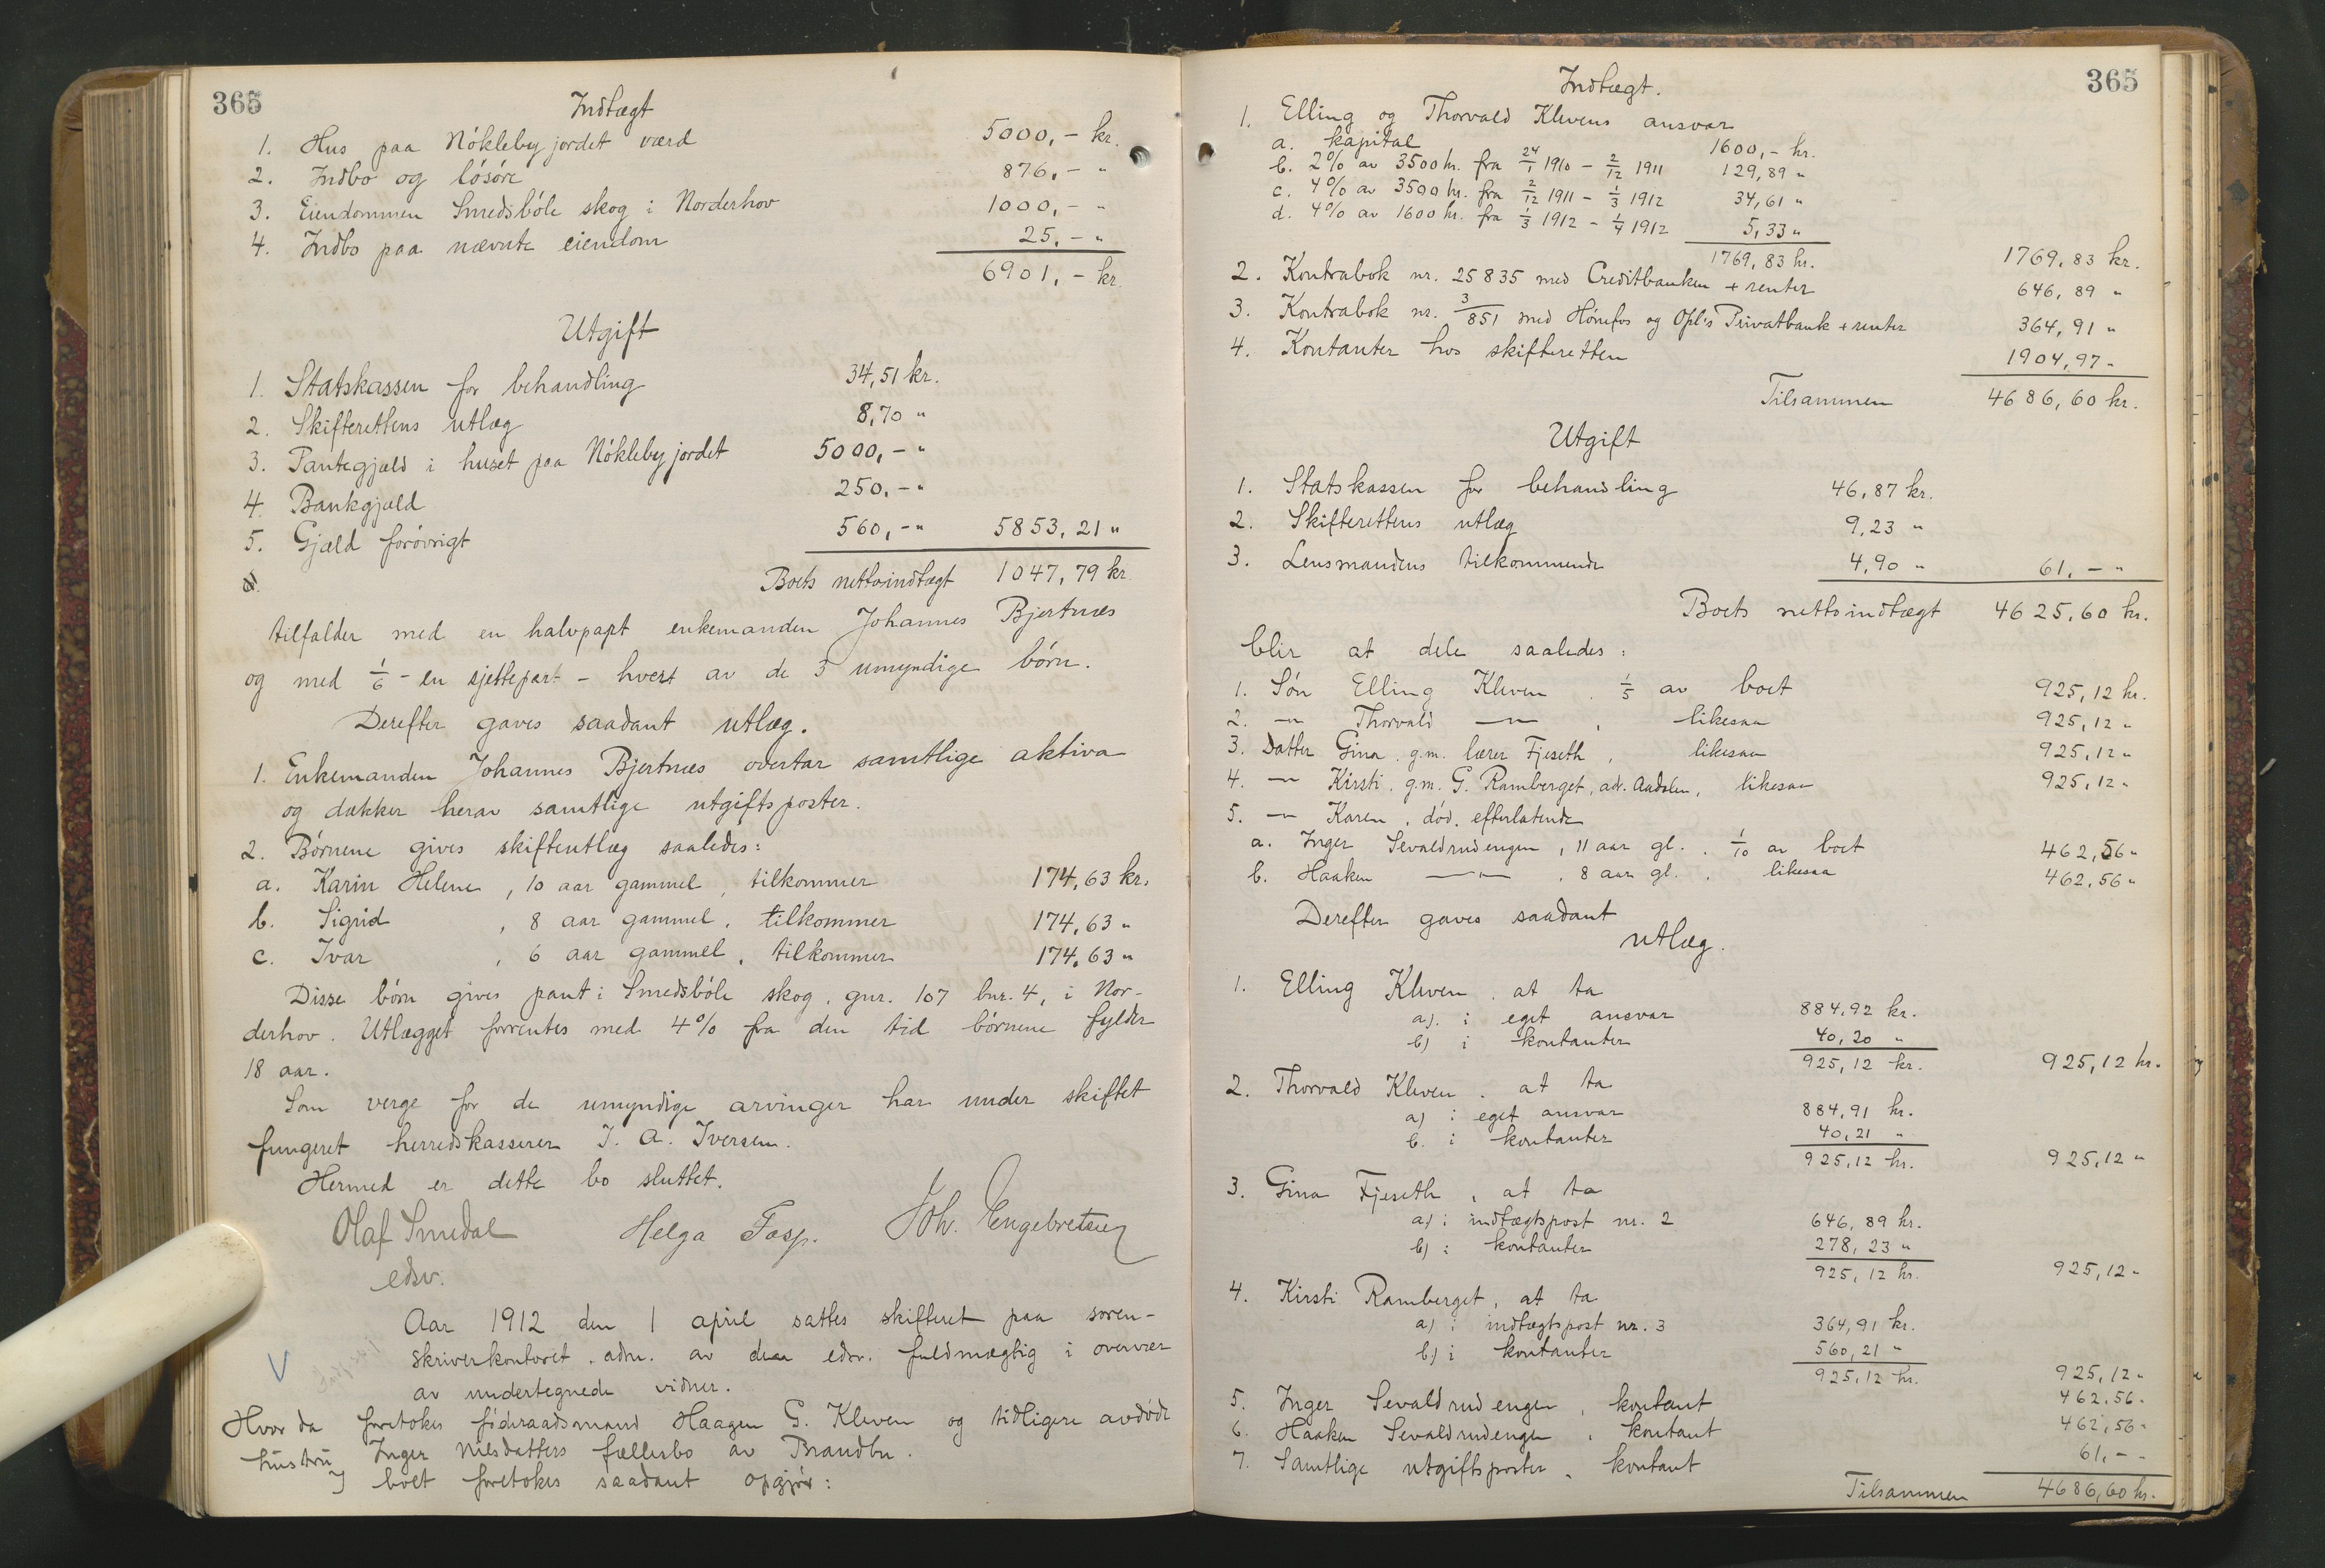 365
Indtægt
1. Hus paa Nökleby jordet værd 5000,- kr.
2. Indbo og lösöre 876,- "
3. Eiendommen Smedsböle skog i Norderhov 1000,- "
4. Indbo paa nævnte eiendom 25,- "
6901,- kr.
Utgift
1. Statskassen for behandling 34,51 kr.
2. Skifterettens utlæg 8,70 "
3. Pantegjæld i huset paa Nökleby jordet 5000,- "
4. Bankgjæld 250,- "
5. Gjæld forövrigt 560,- " 5853,21 "
Boets nettoindtægt 1047,79 kr.
tilfalder med en halvpart enkemanden Johannes Bjertnæs
og med 1/6 - en sjettepart - hvert av de 3 umyndige börn.
Derefter gaves saadant utlæg.
1. Enkemanden Johannes Bjertnæs overtar samtlige aktiva
og dækker herav samtlige utgiftsposter.
2. Börnene gives skifteutlæg saaledes:
a. Karin Helene, 10 aar gammel, tilkommer 174,63 kr.
b. Sigrid, 8 aar gammel, tilkommer 174,63 "
c. Ivar, 6 aar gammel, tilkommer 174,63 "
Disse börn gives pant i Smedsböle skog, gnr. 107 bnr. 4, i Nor-
derhov. Utlægget forrentes med 4% fra den tid börnene fylder
18 aar.
Som verge for de umyndige arvinger har under skiftet
fungeret herredskasserer I. A. Iversen.
Hermed er dette bo sluttet.
Olaf Smedal Helga Fasp. Joh. Engebretsen
edsv.
Aar 1912 den 1 april sattes skifteret paa soren-
skriverkontoret, adm. av den edsv. fuldmægtig i overvær
av undertegnede vidner.
Hvor da foretokes föderaadsmand Haagen G. Kleven og tidligere avdöde
hustru Inger Nilsdatters fællesbo av Brandbu.
I boet foretokes saadant opgjör:
365
Indtægt.
1. Elling og Thorvald Klevens ansvar
a. kapital 1600,- kr.
b. 2% av 3500 kr. fra 24/1 1910 - 2/12 1911 129,89 "
c. 4% av 3500 kr. fra 2/12 1911 - 1/3 1912 34,61 "
d. 4% av 1600 kr. fra 1/3 1912 - 1/4 1912 5,33 "
1769,83 kr. 1769,83 kr.
2. Kontrabok nr. 25835 med Creditbanken + renter 646,89 "
3. Kontrabok nr. 3/851 med Hönefos og Opl's Privatbank + renter 364,91 "
4. Kontanter hos skifteretten 1904,97 "
Tilsammen 4686,60 kr.
Utgift
1. Statskassen for behandling 46,87 kr.
2. Skifterettens utlæg 9,23 "
3. Lensmandens tilkommende 4,90 " 61,- "
Boets nettoindtægt 4625,60 kr.
blir at dele saaledes:
1. Sön Elling Kleven, 1/5 av boet 925,12 kr.
2. -"- Thorvald -"-, likesaa 925,12 "
3. Datter Gina, g.m. lærer Fjeseth, likesaa 925,12 "
4. -"- Kirsti, g.m. G. Ramberget, adr. Aadalen, likesaa 925,12 "
5. -"- Karen, död, efterlatende
a. Inger Sevaldrudengen, 11 aar gl., 1/10 av boet 462,56 "
b. Haaken -"-, 8 aar gl., likesaa 462,56 "
Derefter gaves saadant
utlæg.
1. Elling Kleven, at ta
a). i eget ansvar 884,92 kr.
b) i kontanter 40,20 "
925,12 kr. 925,12 kr.
2. Thorvald Kleven, at ta
a) i eget ansvar 884,91 kr.
b. i kontanter 40,21 "
925,12 kr. 925,12 "
3. Gina Fjeseth, at ta
a) i indtægtspost nr. 2 646,89 kr.
b) i kontanter 278,23 "
925,12 kr. 925,12 "
4. Kirsti Ramberget, at ta
a) i indtægtspost nr. 3 364,91 kr.
b) i kontanter 560,21 "
925,12 kr. 925,12 "
5. Inger Sevaldrudengen, kontant 462,56 "
6. Haaken Sevaldrudengen, kontant 462,56 "
7. Samtlige utgiftsposter, kontant 61,- "
Tilsammen 4686,60 kr.